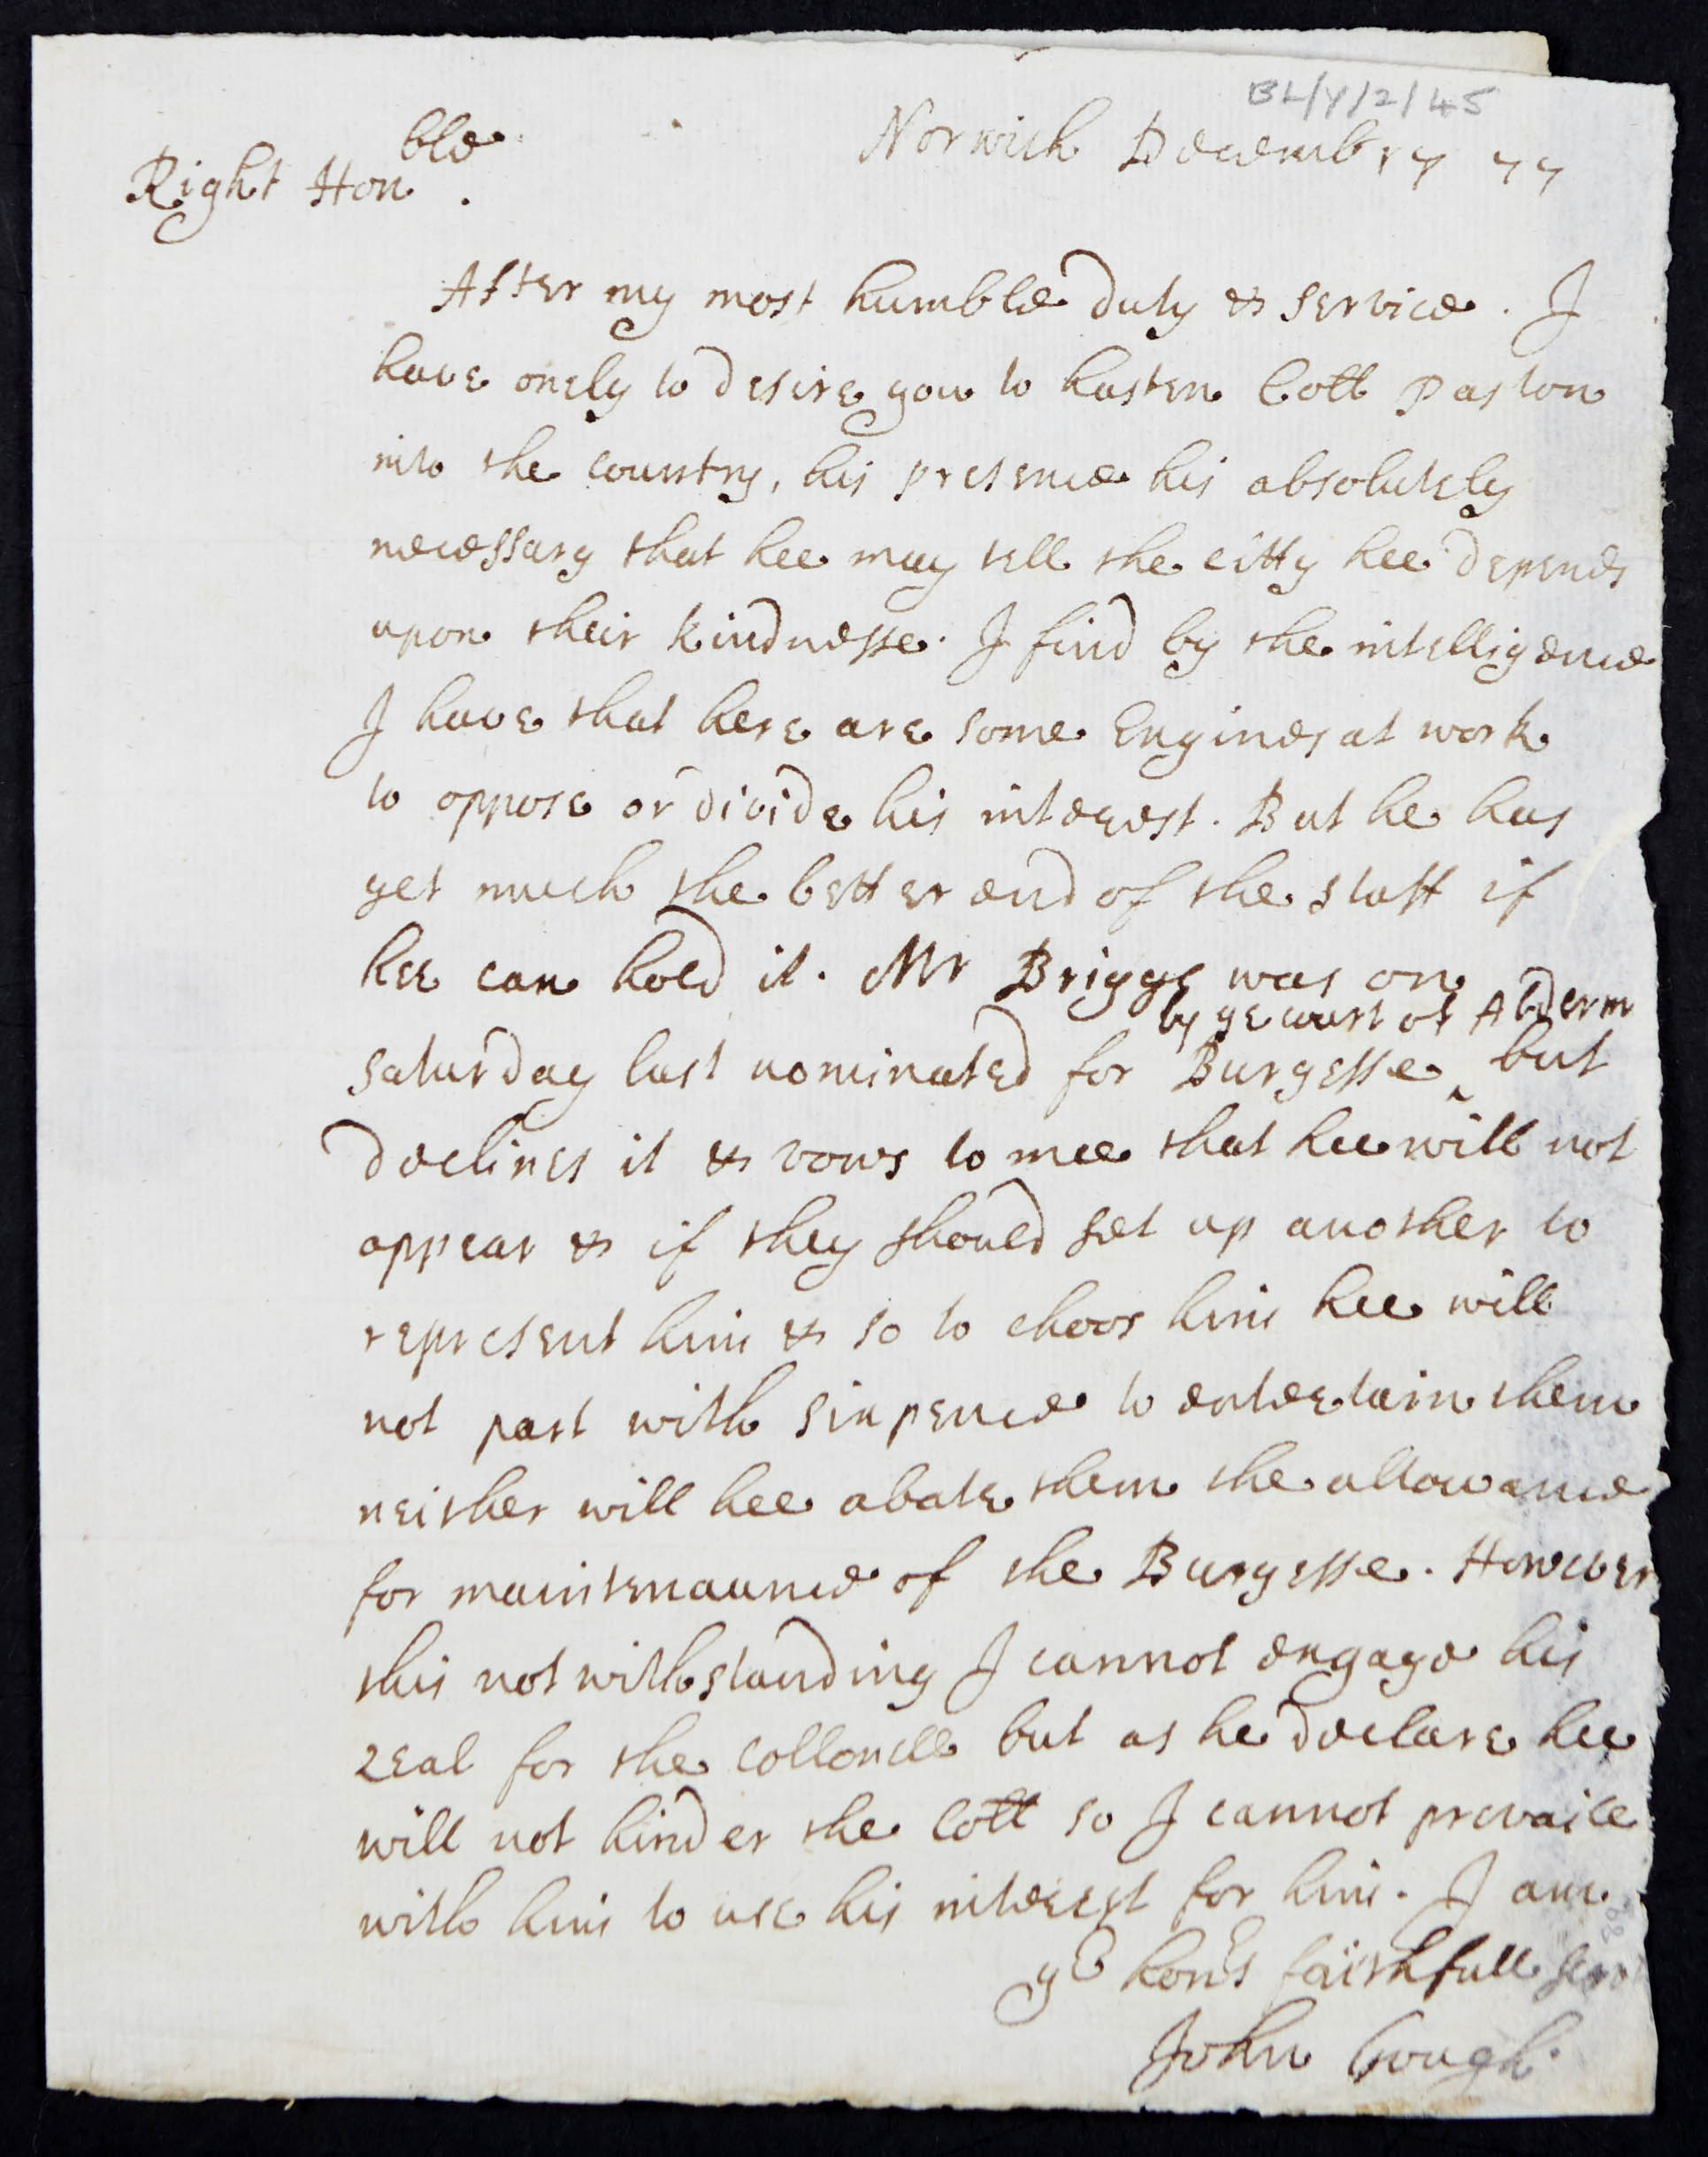 BL/Y/2/45
Norwich Decemb r 7 77
Right Hon ble.
After my most humble duty & service. I
have onely to desire you to hasten Coll Paston
into the country, his presence his absolutely
necessary that hee may tell the citty hee depends
upon their kindnesse. I find by the intelligence
I have that here are some Engines at work
to oppose or divide his interest. But he has
yet much the better end of the staff if
hee can hold it. Mr Briggs was on
by ye court of Alderm
saturday last nominated for Burgesse ‸ but
declines it & vows to mee that hee will not
appear & if they should set up another to
represent him & so to choos him hee will
not part with sixpence to entertain them
neither will hee abate them the allowance
for maintenaunce of the Burgesse. However
this notwithstanding I cannot engage his
zeal for the collonell but as he declare hee
will not hinder the Coll so I cannot prevaile
with him to use his interest for him. I am
yr honrs faithfull serv
John Gough